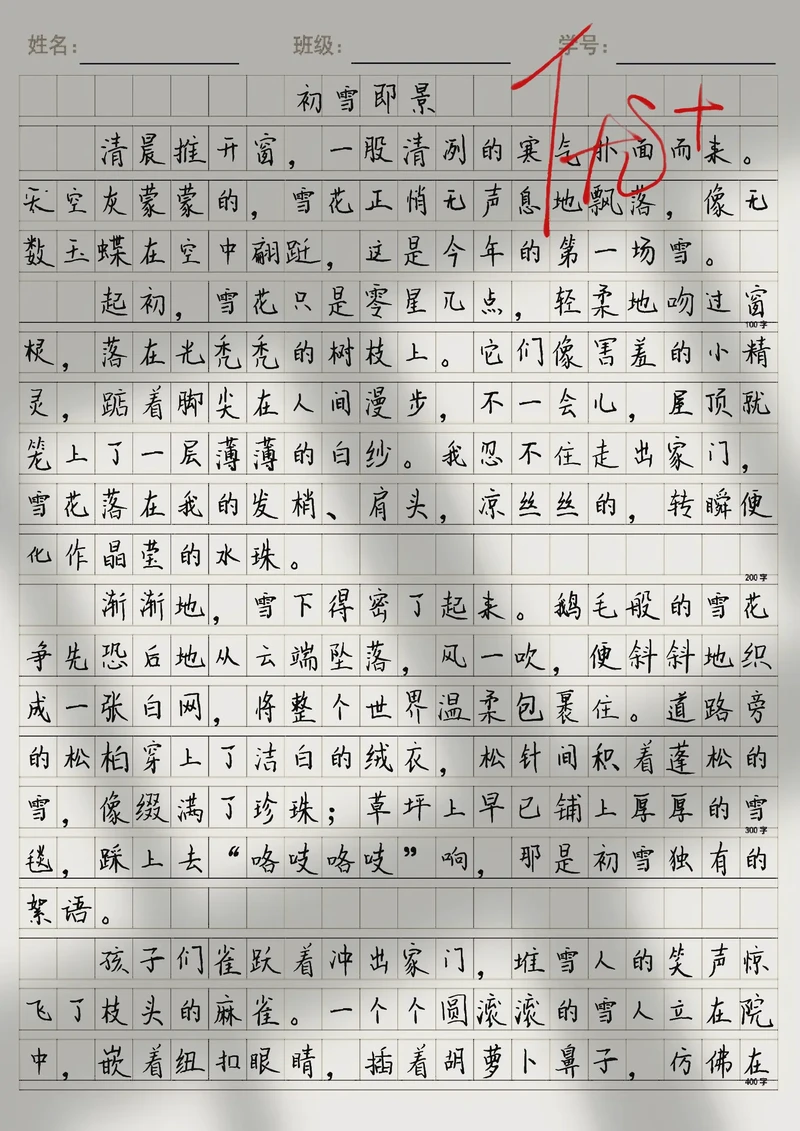 姓名：
班级：
学号：
初雪即景
清晨推开窗，一股清冽的寒气扑面而来。
天空灰蒙蒙的，雪花正悄无声息地飘落，像无
数玉蝶在空中翩跹，这是今年的第一场雪。
起初，雪花只是零星几点，轻柔地吻过窗
100字
棂，落在光秃秃的树枝上。它们像害羞的小精
灵，踮着脚尖在人间漫步，不一会儿，屋顶就
笼上了一层薄薄的白纱。我忍不住走出家门，
雪花落在我的发梢、肩头，凉丝丝的，转瞬便
化作晶莹的水珠。
200字
渐渐地，雪下得密了起来。鹅毛般的雪花
争先恐后地从云端坠落，风一吹，便斜斜地织
成一张白网，将整个世界温柔包裹住。道路旁
的松柏穿上了洁白的绒衣，松针间积着蓬松的
雪，像缀满了珍珠；草坪上早已铺上厚厚的雪
300字
毯，踩上去“咯吱咯吱”响，那是初雪独有的
絮语。
孩子们雀跃着冲出家门，堆雪人的笑声惊
飞了枝头的麻雀。一个个圆滚滚的雪人立在院
中，嵌着纽扣眼睛，插着胡萝卜鼻子，仿佛在
400字